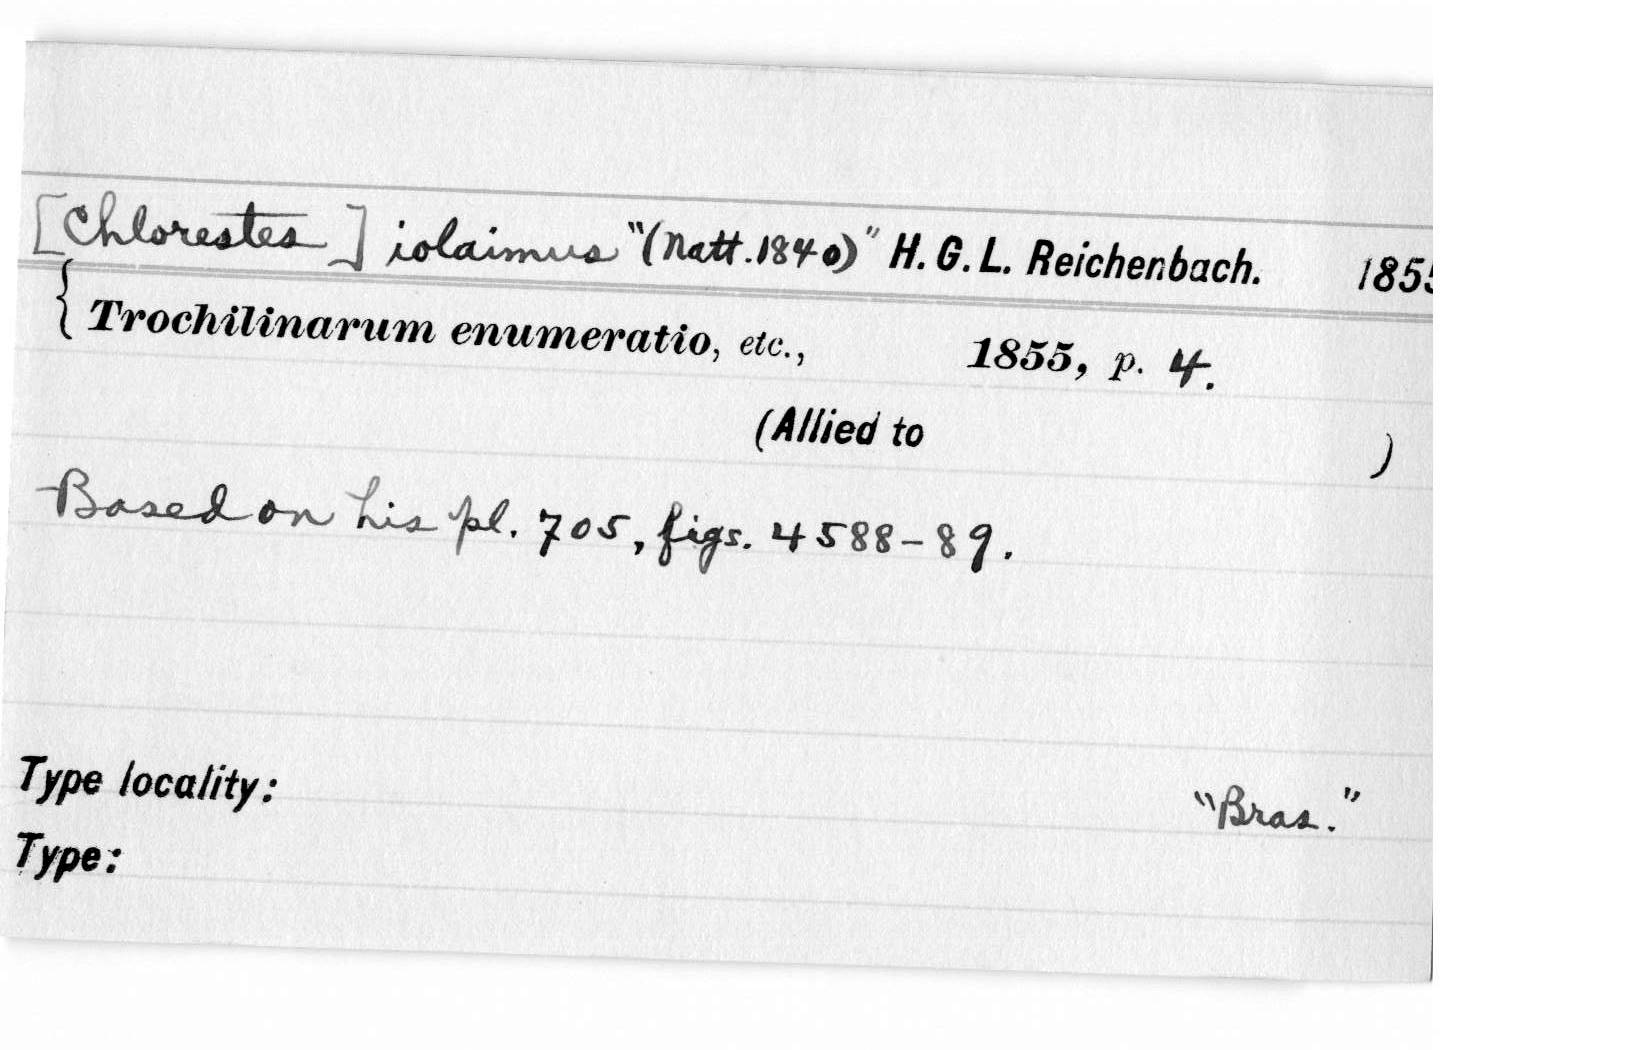 [Chlorestes] iolaimus "(Natt. 1840)" H. G. L. Reichenbach. 1855
{ Trochilinarum enumeratio, etc., 1855, p. 4.
(Allied to )
Based on his pl. 705, figs. 4588-89.
Type locality: "Bras."
Type: